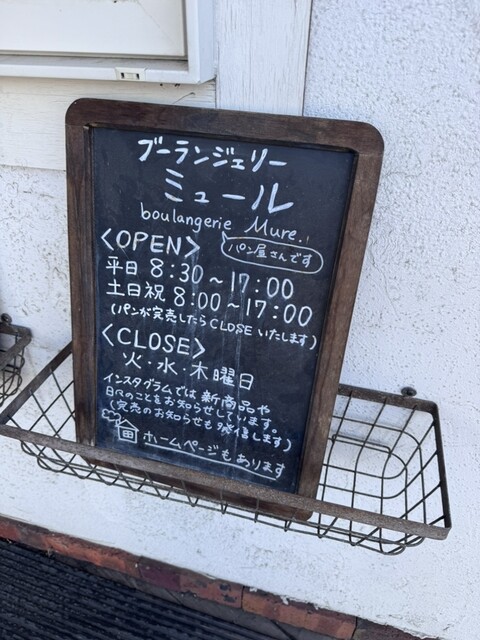 ブーランジェリー
ミュール
boulangerie Mure.
パン屋さんです
<OPEN>
平日 8:30~17:00
土日祝 8:00~17:00
(パンが完売したらCLOSEいたします)
<CLOSE>
火・水・木曜日
インスタグラムでは新商品や
日々のことをお知らせしています。
(完売のお知らせも発信します)
ホームページもあります